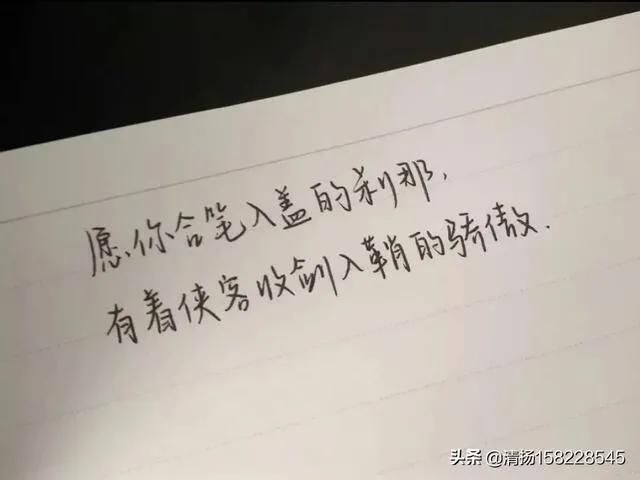 愿你合笔入盖的刹那,
有着侠客收剑入鞘的骄傲.
头条 @清扬158228545